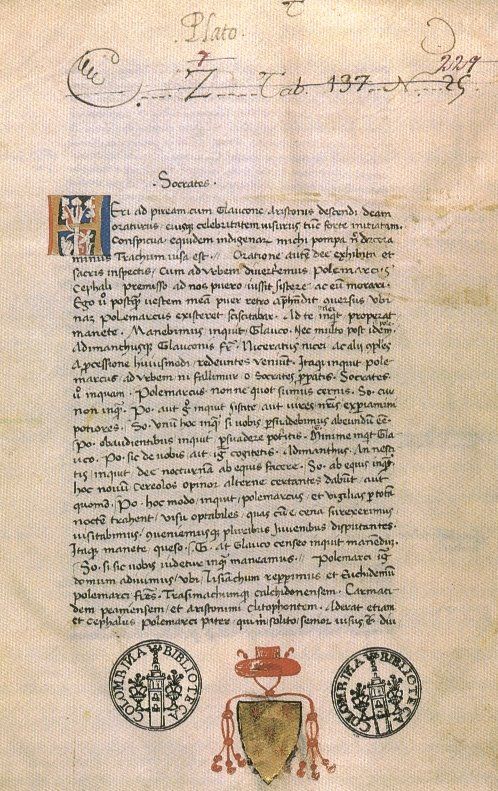 Plato.
7
Z Tab. 137 N 25
229
·Socrates·
HEri ad piream cum Glaucone Aristonis descendi deam
oraturus eiusque celebritatem uisurus tunc forte initiatam.
Conspicua equidem indigenar michi pompa decora
minus Trachum uisa est. Oratione aute dee exhibita et
sacris inspectis, Cum ad urbem diuertemus Polemarcus
Cephali premisso ad nos puero iussit sistere ac eum morari.
Ego uestem mea puer retro uersus ubi
nam Polemarcus existeret sciscitabar. Ad te properat
manete. Manebimus inquit Glauco. Nec multo post idem
Adimanchusque Glauconis Niceratus nicei ac alii
Apcessione huiusmodi redeuntes ueniut. Itaque inquit pole
marcus ad urbem ni fallimur o Socrates. Socrates
inquam. Polemarcus non ne quot simus cernis. So. cur
non. Po. aut inquit sistite aut uires expiamini
potiores. So. si uobis abeundu
Po. obaudientibus inquit. Minime Gla
uco. Po. sic de uobis aut cogitetis. Adimanthus. An nesci
tis inquit dee nocturna ab equis facere. So. ab equis
hoc nouu cereolos opinor alterne certantes dabut aut
quomo. Po. hoc modo inquit polemarcus et uigilias tota
nocte trahent uisu optabiles quas cu e cena surexerimus
uisitabimus pluribus iuuenibus disputantes.
Itaque manete queso. At Glauco censeo inquit manedu
So. si sic uobis uidetur maneamus. Polemarci
domum adiuimus ubi Lisiachum repperimus et Euchidemu
polemarci Trasimachumque calchidonensem. Carmati
dem peamensem et aristonimi clitophontem. Aderat etiam
et Cephalus Polemarci pater solito senior uisus diu
COLOMBINA BIBLIOTECA
COLOMBINA BIBLIOTECA